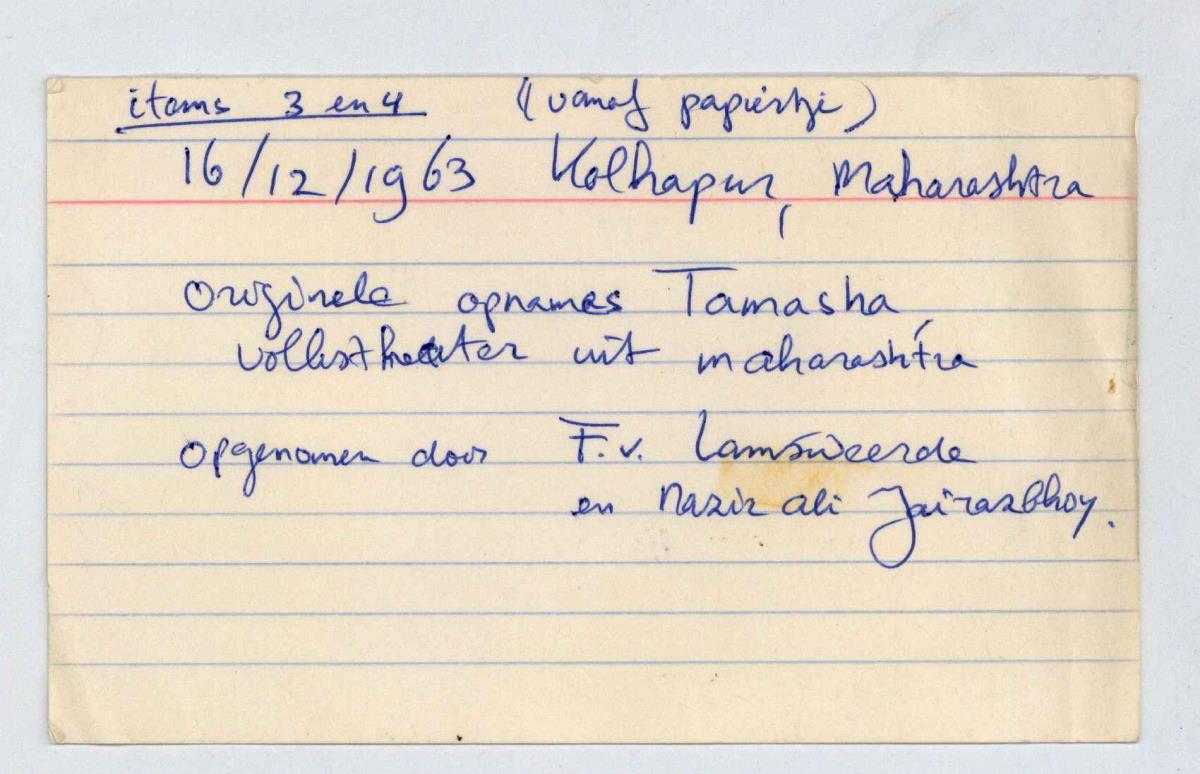 items 3 en 4 (vanaf papiertje)
16/12/1963 Kolhapur, Maharashtra
Originele opnames Tamasha,
volkstheater uit maharashtra
opgenomen door F. v. Lamsweerde
en Nazir Ali Jairazbhoy.